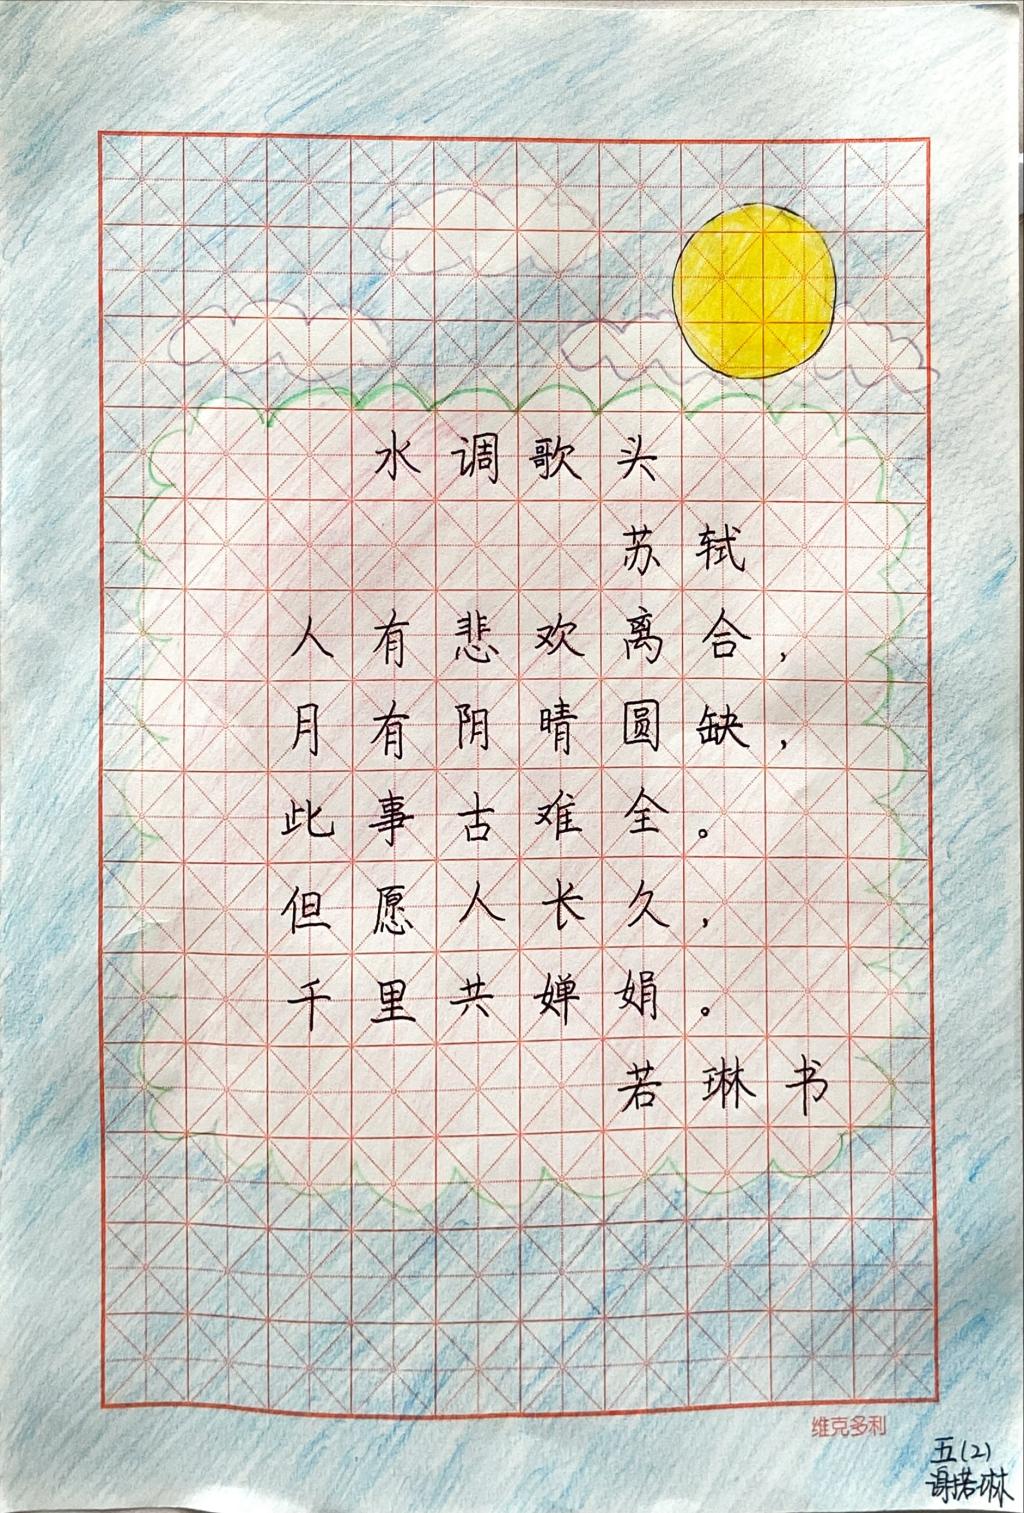 水调歌头
苏轼
人有悲欢离合，
月有阴晴圆缺，
此事古难全。
但愿人长久，
千里共婵娟。
若琳书
维克多利
五(2)
谢若琳